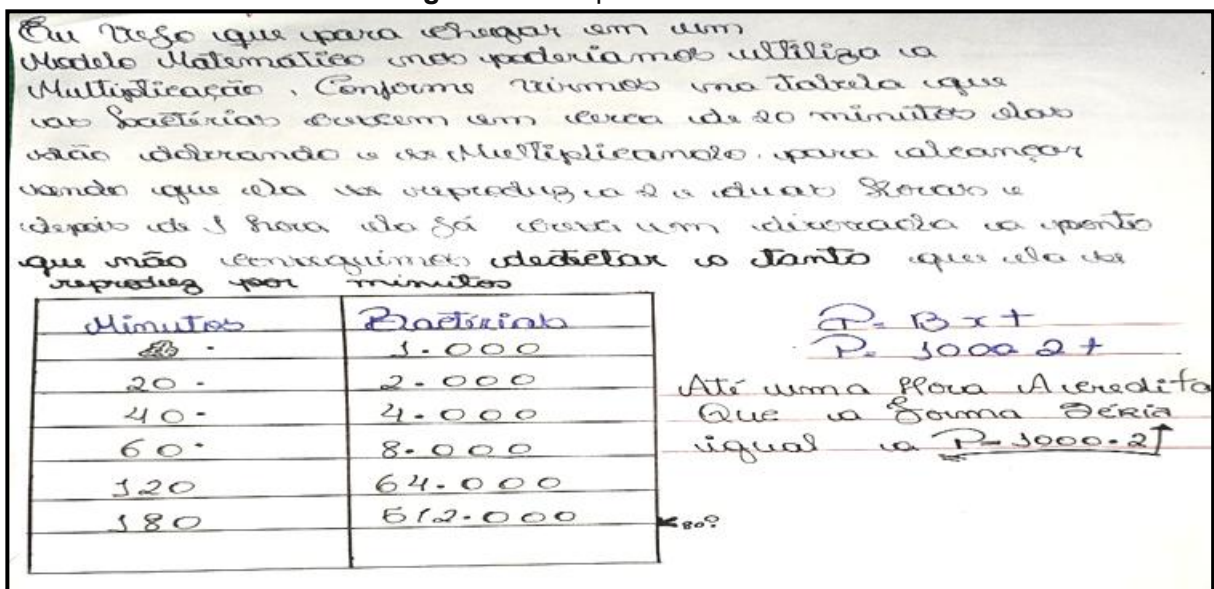 Eu vejo que para chegar em um
Modelo Matemático nos poderiamos ultiliza a
Multiplicação. Conforme vimos na tabela que
as bactérias crescem em cerca de 20 minutos elas
estão dobrando e se Multiplicando. para alcançar
vendo que ela se reproduz a 2 a duas horas e
depois de 1 hora ela já cresci um disparada a ponto
que não conseguimos dedectar o tanto que ela se
reproduz por minutos
Minutos Bactérias
1.000
20. 2.000
40. 4.000
60. 8.000
120 64.000
180 512.000
80?
P= B x t
P= 1000 2 t
Até uma Hora Acredita
Que a Forma Séria
igual a P=1000.2↑